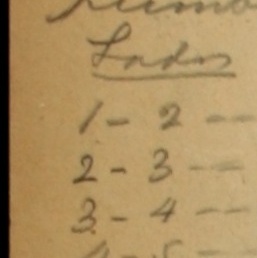 Lados
1 - 2 --
2 - 3 --
3 - 4 --
4 - 5 --